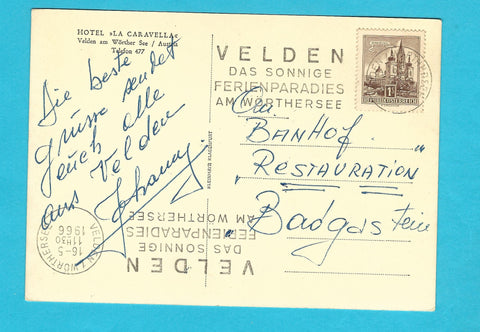 HOTEL »LA CARAVELLA«
Velden am Wörther See / Austria
Telefon 477
Die beste
grüsse sendet
euch alle
aus Velden
Johanny
VELDEN
DAS SONNIGE
FERIENPARADIES
AM WÖRTHERSEE
REPUBLIK ÖSTERREICH
An
BANHOF
"RESTAURATION"
Badgastein
VELDEN
DAS SONNIGE
FERIENPARADIES
AM WÖRTHERSEE
VELDEN
16-5
1966
11H30
WÖRTHERSEE